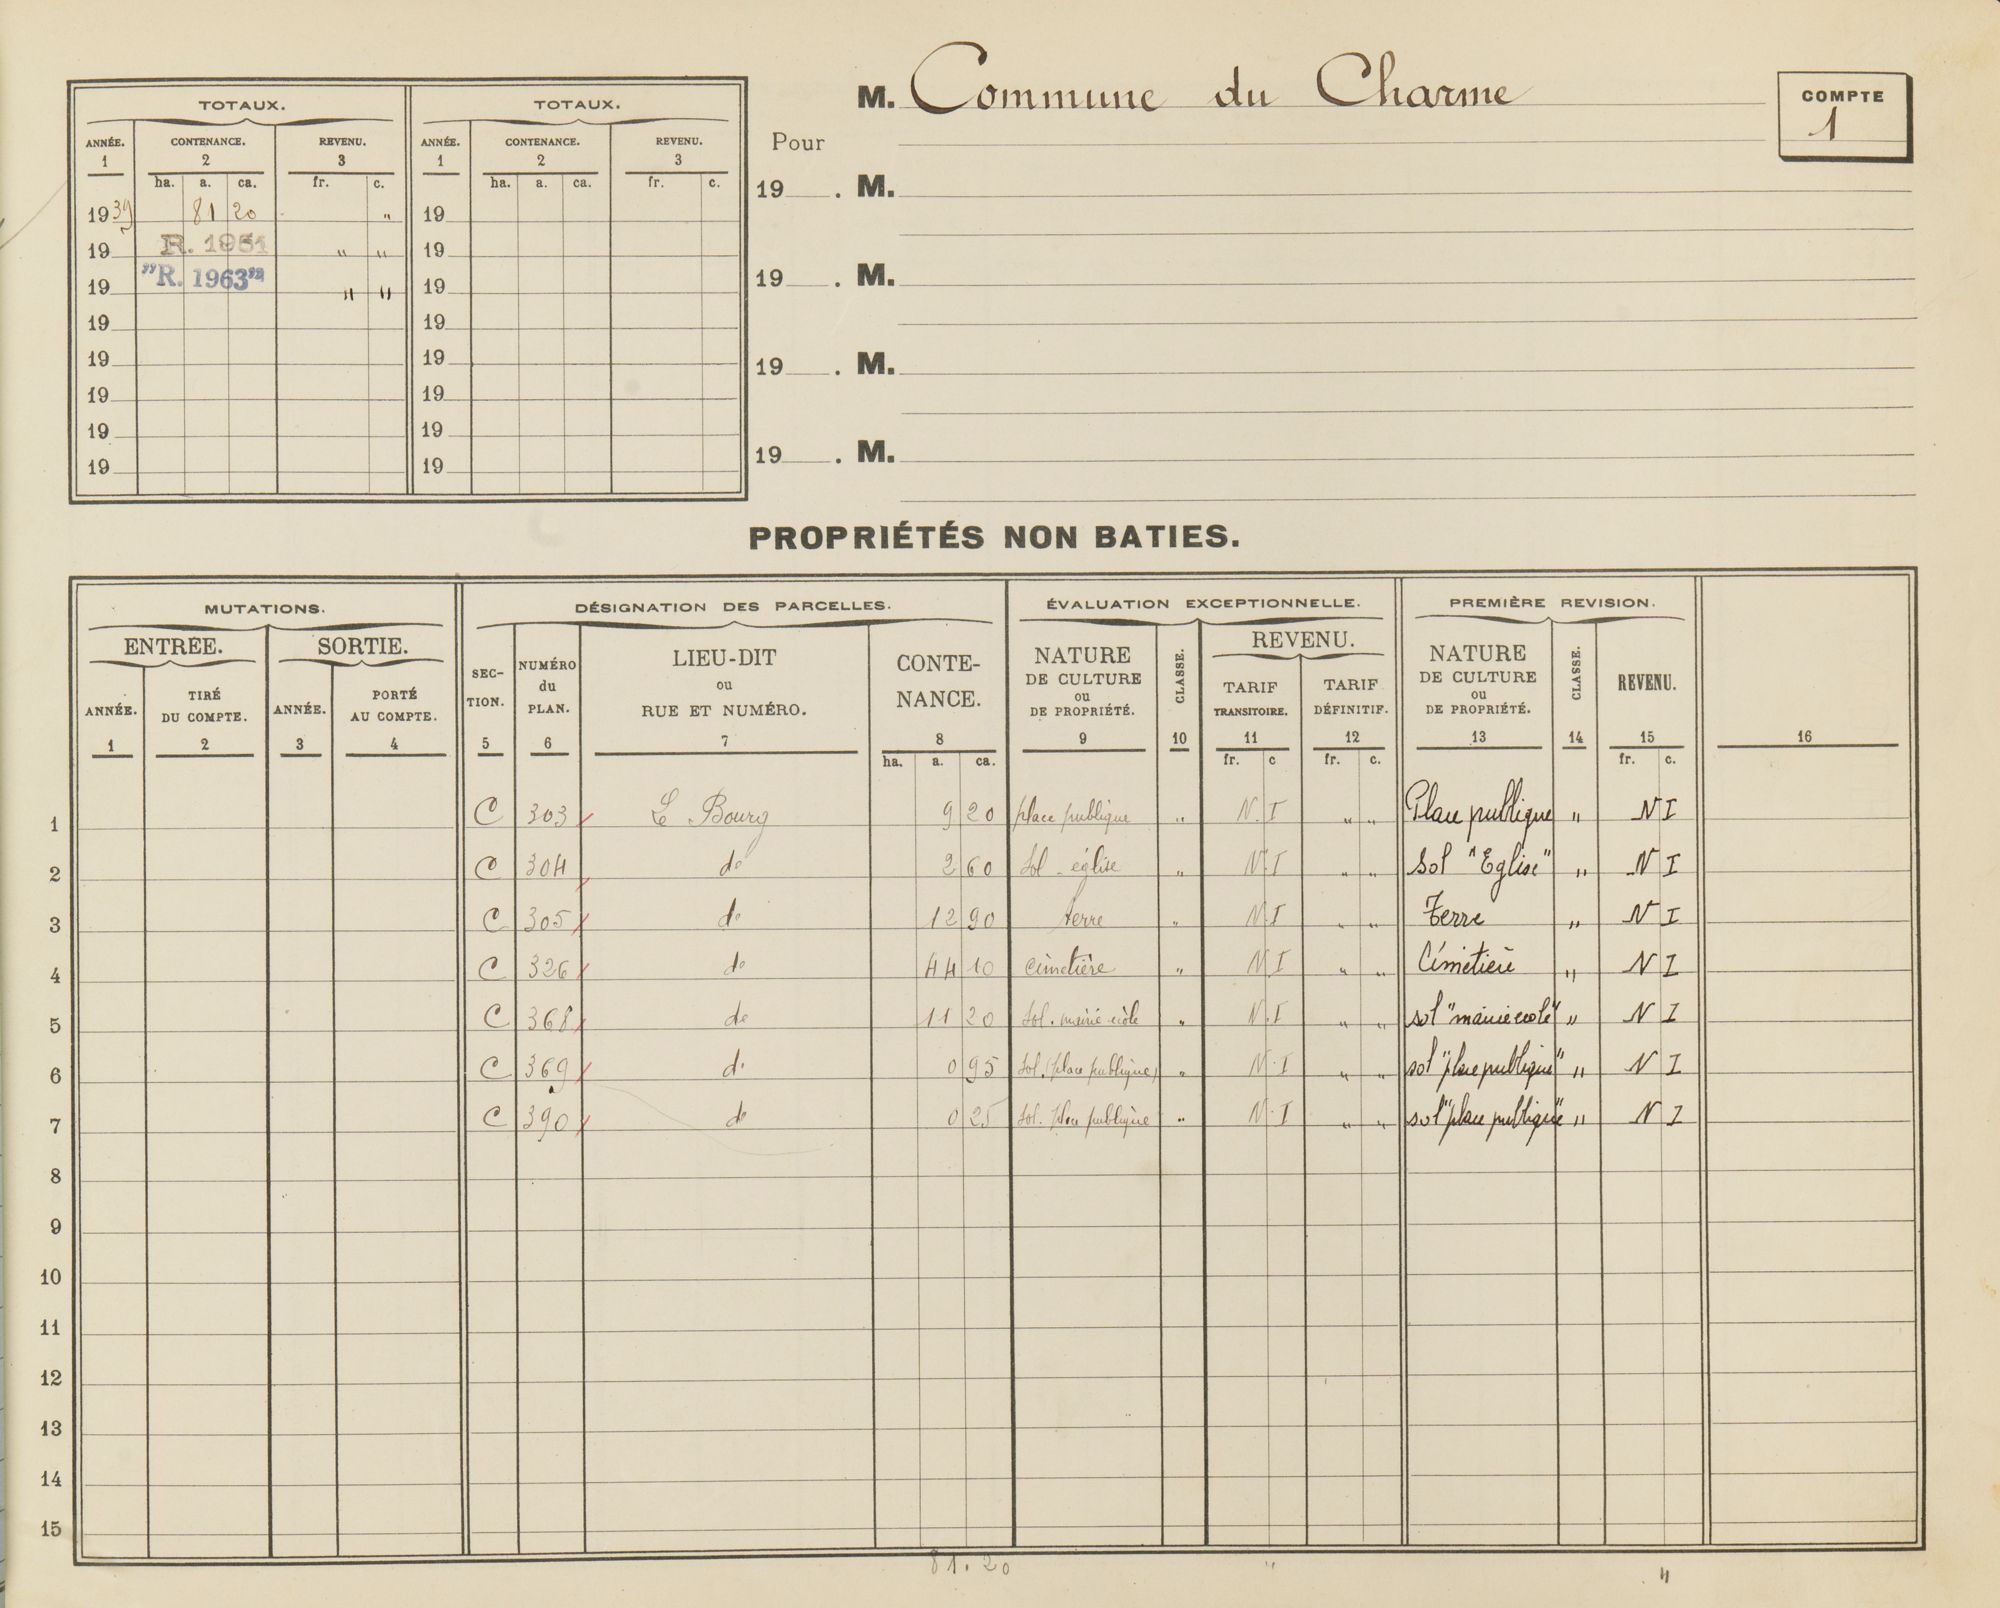 M. Commune du Charme
COMPTE
1
TOTAUX. TOTAUX.
ANNÉE. CONTENANCE. REVENU. ANNÉE. CONTENANCE. REVENU.
1 2 3 1 2 3
ha. a. ca. fr. c. ha. a. ca. fr. c.
1939 81 20 " 19
19 R. 1951 " " 19
19 "R. 1963" " " 19
19 19
19 19
19 19
19 19
19 19
Pour
19 . M.
19 . M.
19 . M.
19 . M.
PROPRIÉTÉS NON BATIES.
MUTATIONS. DÉSIGNATION DES PARCELLES. ÉVALUATION EXCEPTIONNELLE. PREMIÈRE REVISION.
ENTRÉE. SORTIE. SEC- NUMÉRO LIEU-DIT CONTE- NATURE CLASSE. REVENU. NATURE CLASSE. REVENU.
ANNÉE. TIRÉ ANNÉE. PORTÉ TION. du ou NANCE. DE CULTURE TARIF TARIF DE CULTURE
DU COMPTE. AU COMPTE. PLAN. RUE ET NUMÉRO. ou TRANSITOIRE. DÉFINITIF. ou
DE PROPRIÉTÉ. DE PROPRIÉTÉ.
1 2 3 4 5 6 7 8 9 10 11 12 13 14 15 16
ha. a. ca. fr. c fr. c. fr. c.
1 C 303 Le Bourg 9 20 place publique " N. I " " Place publique " N I
2 C 304 do 2 60 sol église " N. I " " sol "Eglise" " N I
3 C 305 do 12 90 terre " N. I " " Terre " N I
4 C 326 do 44 10 cimetière " N I " " Cimetière " N I
5 C 368 do 11 20 sol. mairie école " N. I " " sol "mairie ecole" " N I
6 C 369 do 0 95 sol. (place publique) " N. I " " sol "place publique" " N I
7 C 390 do 0 25 sol. place publique " N. I " " sol "place publique" " N I
8
9
10
11
12
13
14
15
81. 20 " "